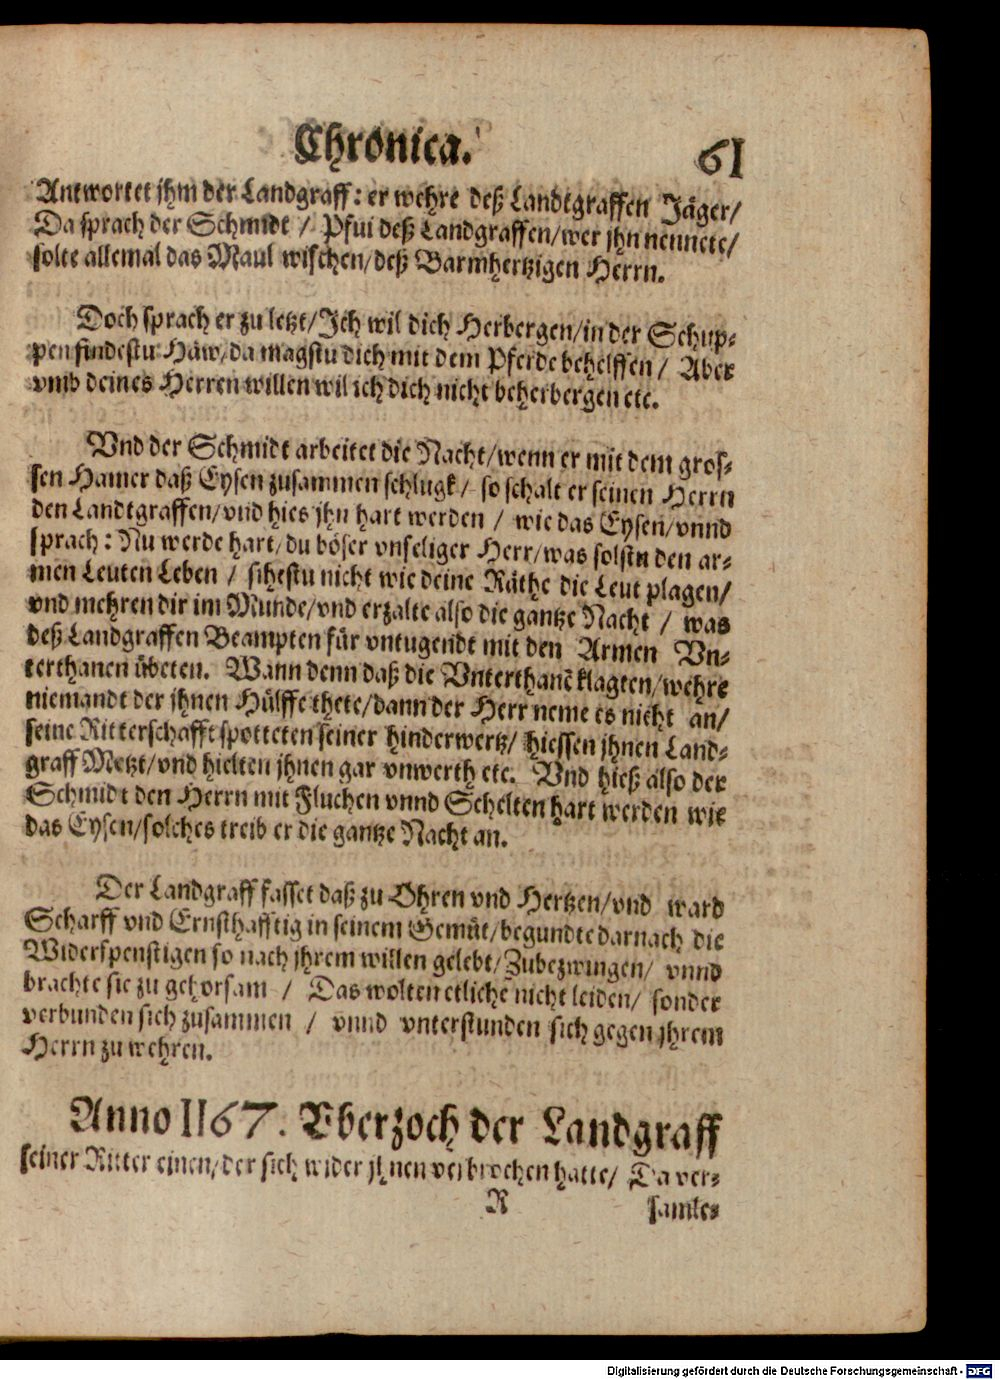 Chronica. 61
Antwortet jhm der Landgraff: er wehre deß Landtgraffen Jäger/
Da sprach der Schmidt / Pfui deß Landgraffen/wer jhn nennete/
solte allemal das Maul wischen/deß Barmhertzigen Herrn.
Doch sprach er zu letzt/Ich wil dich Herbergen/in der Schup-
pen findestu Häw/da magstu dich mit dem Pferde behelffen / Aber
vmb deines Herren willen wil ich dich nicht beherbergen etc.
Vnd der Schmidt arbeitet die Nacht/wenn er mit dem gros-
sen Hamer daß Eysen zusammen schlugk / so schalt er seinen Herrn
den Landtgraffen/vnd hies jhn hart werden / wie das Eysen/vnnd
sprach: Nu werde hart/du böser vnseliger Herr/was solstu den ar-
men Leuten Leben / sihestu nicht wie deine Räthe die Leut plagen/
vnd mehren dir im Munde/vnd erzalte also die gantze Nacht / was
deß Landgraffen Beampten für vntugendt mit den Armen Vn-
terthanen übeten. Wann denn daß die Vnterthanē klagten/wehre
niemandt der jhnen Hülffe thete/dann der Herr neme es nicht an/
seine Ritterschafft spotteten seiner hinderwertz/ hiessen jhnen Land-
graff Metzt/vnd hielten jhnen gar vnwerth etc. Vnd hieß also der
Schmidt den Herrn mit Fluchen vnnd Schelten hart werden wie
das Eysen/solches treib er die gantze Nacht an.
Der Landgraff fasset daß zu Ohren vnd Hertzen/vnd ward
Scharff vnd Ernsthafftig in seinem Gemüt/begundte darnach die
Widerspenstigen so nach jhrem willen gelebt/Zubezwingen/ vnnd
brachte sie zu gehorsam / Das wolten etliche nicht leiden/ sonder
verbunden sich zusammen / vnnd vnterstunden sich gegen jhrem
Herrn zu wehren.
Anno 1167. Vberzoch der Landgraff
seiner Ritter einen/der sich wider jhnen verbrochen hatte/ Da ver-
R samle-
Digitalisierung gefördert durch die Deutsche Forschungsgemeinschaft - DFG